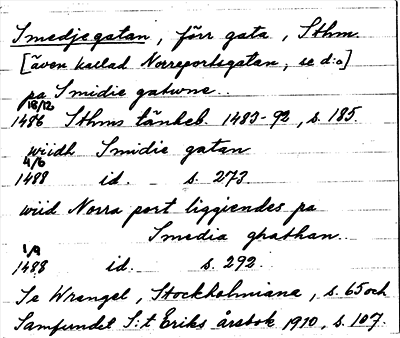 Smedjegatan, förr gata, Sthm.
[även kallad Norreportsgatan, se d:o]
pa Smidie gatwne..
18/12
1486 Sthms tänkeb. 1483-92, s. 185.
wiidh Smidie gatan
4/6
1488 id. s. 273
wiid Norra port liggiendes pa
Smedia ghathan.
1/9
1488 id. s. 292.
Se Wrangel, Stockholmiana, s. 65 och
Samfundet S:t Eriks årsbok 1910, s. 107.